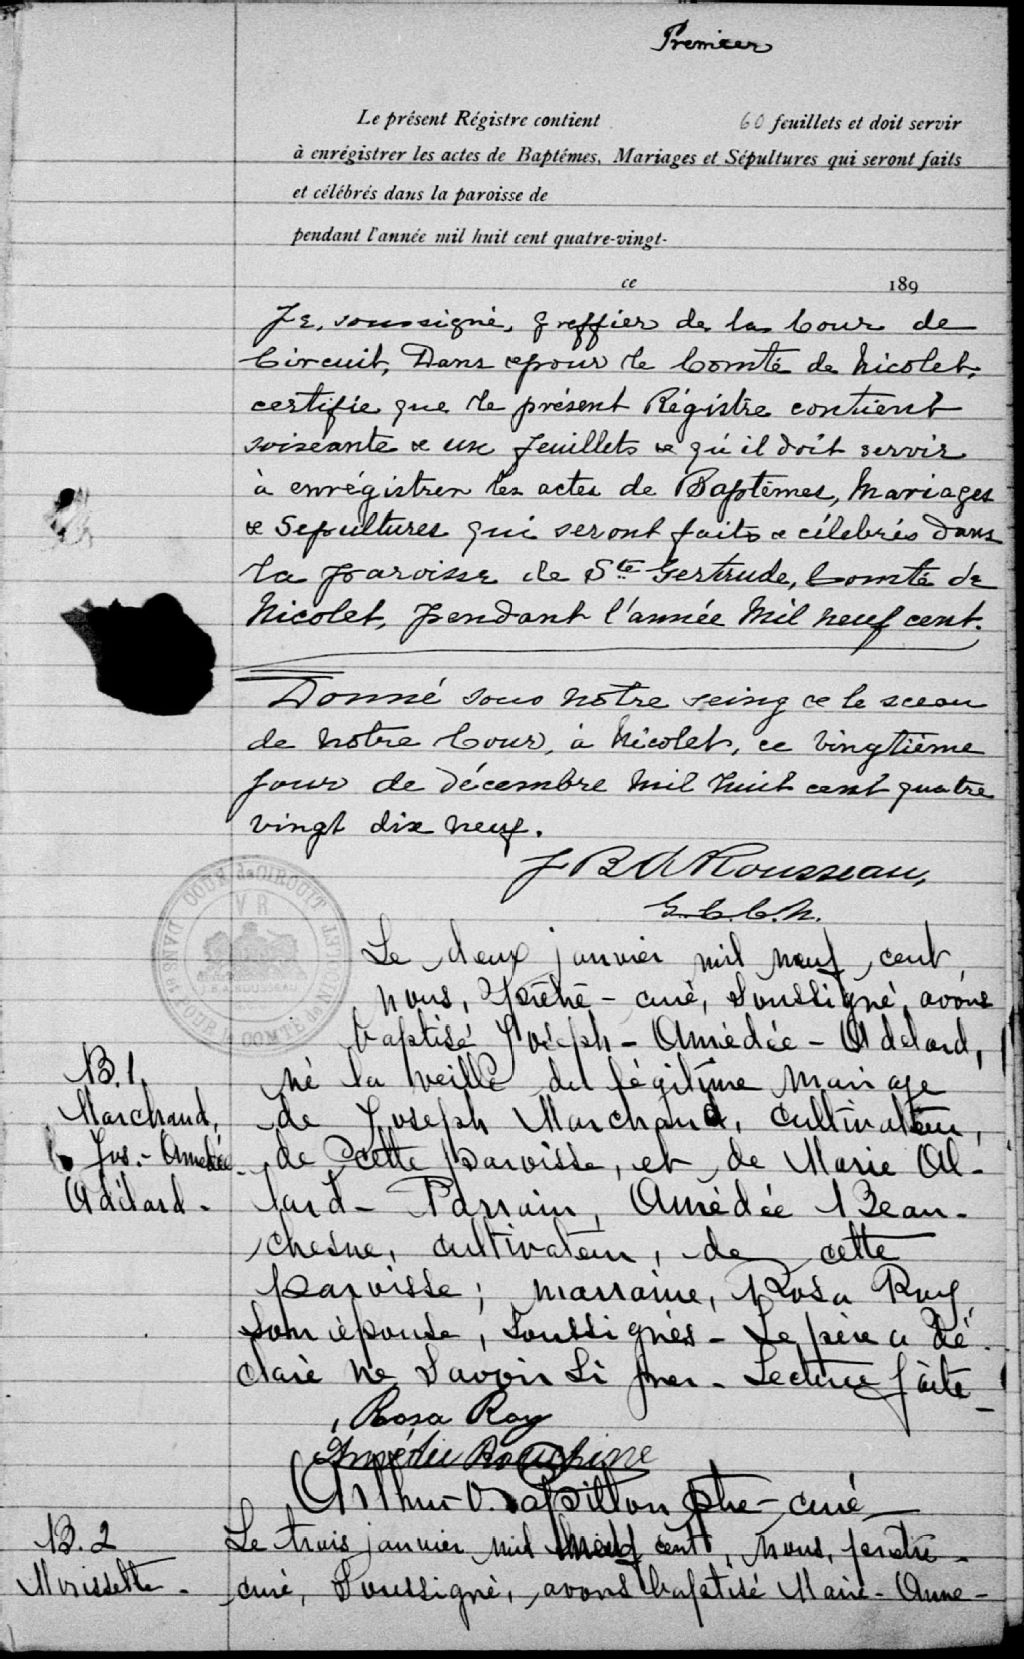 Premier
Le présent Régistre contient 60 feuillets et doit servir
à enrégistrer les actes de Baptêmes, Mariages et Sépultures qui seront faits
et célébrés dans la paroisse de
pendant l'année mil huit cent quatre-vingt-
ce 189
Je, soussigné, greffier de la Cour de
Circuit, Dans & pour le Comté de Nicolet,
certifie que le présent Régistre contient
soixante & un feuillets & qu'il doit servir
à enrégistrer les actes de Baptêmes, Mariages
& Sepultures qui seront faits & célébrés dans
la paroisse de Ste Gertrude, Comté de
Nicolet, pendant l'année Mil neuf cent.
Donné sous notre seing & le sceau
de notre Cour, à Nicolet, ce vingtième
jour de décembre mil huit cent quatre
vingt dix neuf.
J B A Rousseau,
G.C.C.N.
COUR de CIRCUIT
DANS & POUR le COMTÉ de NICOLET
V R
J.B.A. ROUSSEAU
Le deux janvier mil neuf cent,
nous, prêtre - curé, soussigné, avons
baptisé Joseph - Amédée - Adelard,
né la veille du légitime mariage
B. 1.
Marchand,
Jos. - Amédée
Adélard -
de Joseph Marchand, cultivateur,
de cette paroisse, et de Marie Al-
lard - Parrain, Amédée Beau-
chesne, cultivateur, de cette
paroisse; marraine, Rosa Roy
son épouse, soussignés - Le père a dé-
claré ne savoir signer - Lecture faite -
Rosa Roy
Amédée
Arthur O. Papillon ptre - curé
B. 2
Morissette -
Le trois janvier mil neuf cent, nous, prêtre -
curé, soussigné, avons baptisé Marie - Anne -